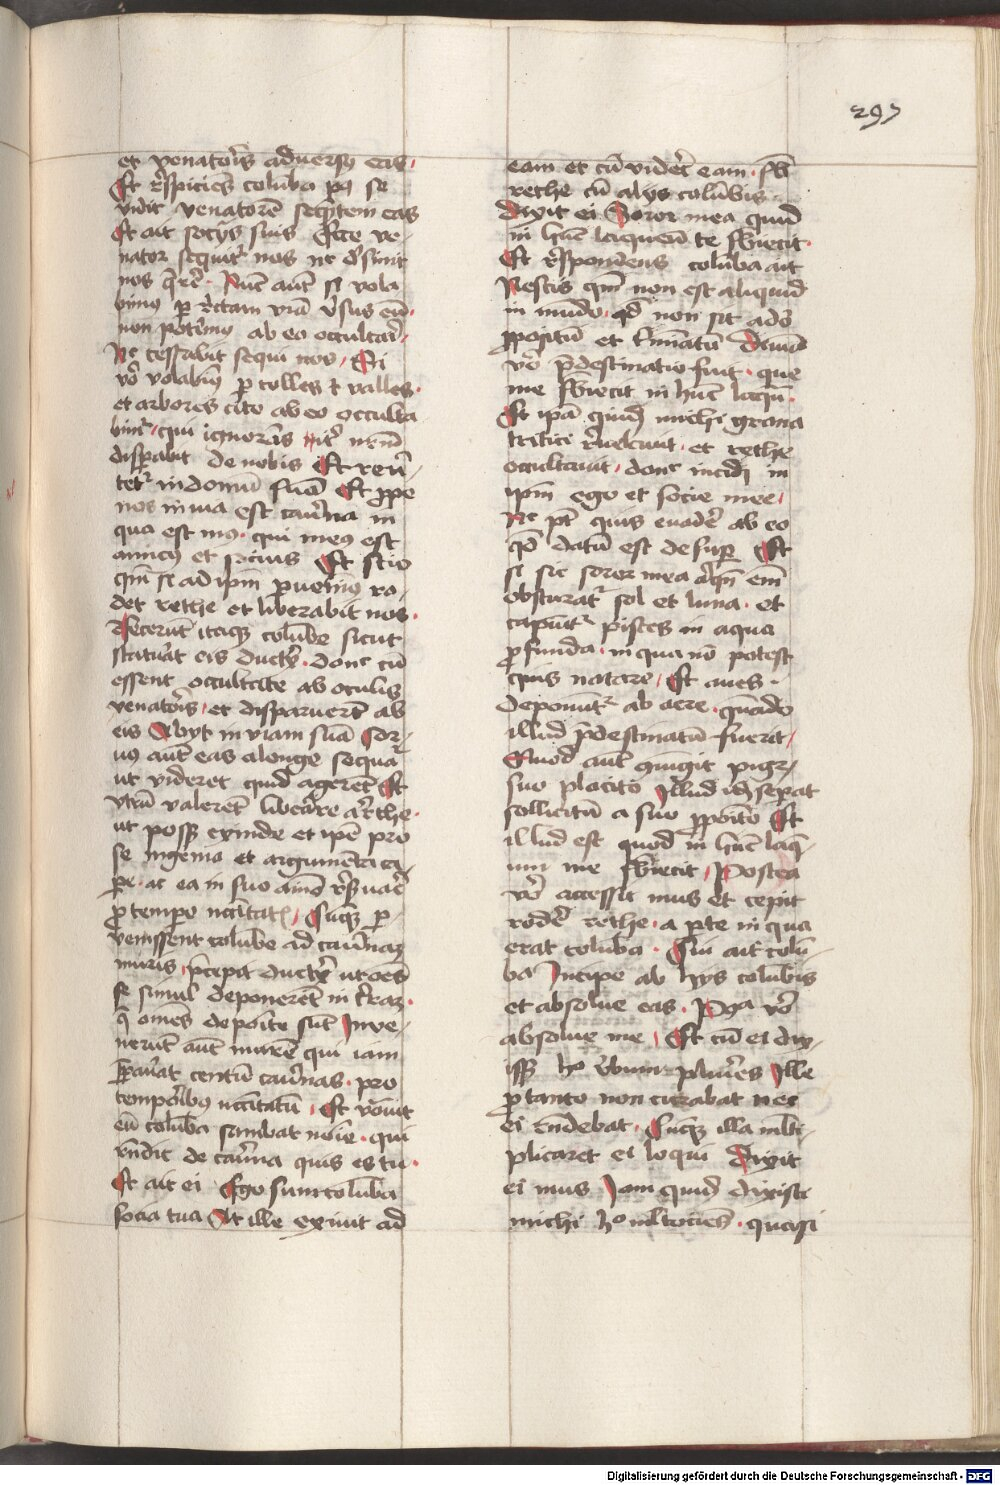 297
et venatoris adversus eas
Et respiciens columba post se
vidit venatorem sequentem eas
Et ait socijs suis Ecce ve-
nator sequitur nos nec desinit
nos querere. Nunc autem si vola
bimus per rectam viam versus eum
non poterimus ab eo occultari
Nec cessabit sequi nos, Si
vero volabimus per colles et valles
et arbores cito ab eo occulta
bimur, qui ignorans iter nostrum
desperabit de nobis Et rever-
tetur in domum suam Et prope
nos in via est caverna in
qua est mus, qui meus est
amicus et socius Et scio
quoniam si ad ipsum pervenimus ro-
det rethe et liberabit nos
Fecerunt itaque columbe sicut
statuerat eis ductrix. donec cum
essent occultate ab oculis
venatoris, et disparuerunt ab
eis Abijt in viam suam Cor-
vus autem eas a longe sequebatur
ut videret quid agerent Et
utrum valerent liberare a rethe
ut posset exinde et ipse pro
se ingenia et argumenta ca-
pere. ac ea in suo animo reservare
pro tempore necessitatis, Cumque per-
venissent columbe ad cavernam
muris, precepit ductrix ut omnes
se simul deponerent in terram.
que omnes deposite sunt Inve-
nerunt autem murem qui iam
preparaverat centum cavernas. pro
temporibus necessitatum, Et vocavit
eum columba sambat nomine. qui
respondit de caverna quis es tu.
Et ait ei Ego sum columba
socia tua At ille exivit ad
eam et cum videret eam. sub
rethe cum alijs columbis.
dixit ei Soror mea quid
in hunc laqueum te subiecit.
Et respondens columba ait
Nescis quoniam non est aliquid
in mundo. quod non sit a deo
propositum et terminatum deinde
vero predestinatio fuit. que
me subiecit in hunc laqueum.
Et ipsa quidem michi grana
tritici revelavit. et rethe
occultavit, donec incidi in
ipsum ego et socie mee,
Nec potest quis evadere ab eo
quod datum est desuper Et
si sic soror mea
obscuratur sol et luna. et
capiuntur pisces in aqua
profunda. in qua non potest
quis natare, Et aves.
deponuntur ab aere. quando
illud predestinatum fuerit,
Quod autem coniungit pigrum
suo placito Illud idem separat
sollicitum a suo proposito Et
illud est quod in hunc laque-
um me subiecit, Postea
vero accessit mus et cepit
rodere rethe. a parte in qua
erat columba. Cui ait colum-
ba Incipe ab hijs columbis
et absolve eas. Postea vero
absolve me, Et cum ei dix-
isset hoc verbum pluries Ille
pro tanto non curabat nec
ei respondebat. Cumque illa multi-
plicaret ei loqui Dixit
ei mus Iam quidem dixisti
michi hoc multociens. quasi
Digitalisierung gefördert durch die Deutsche Forschungsgemeinschaft - DFG